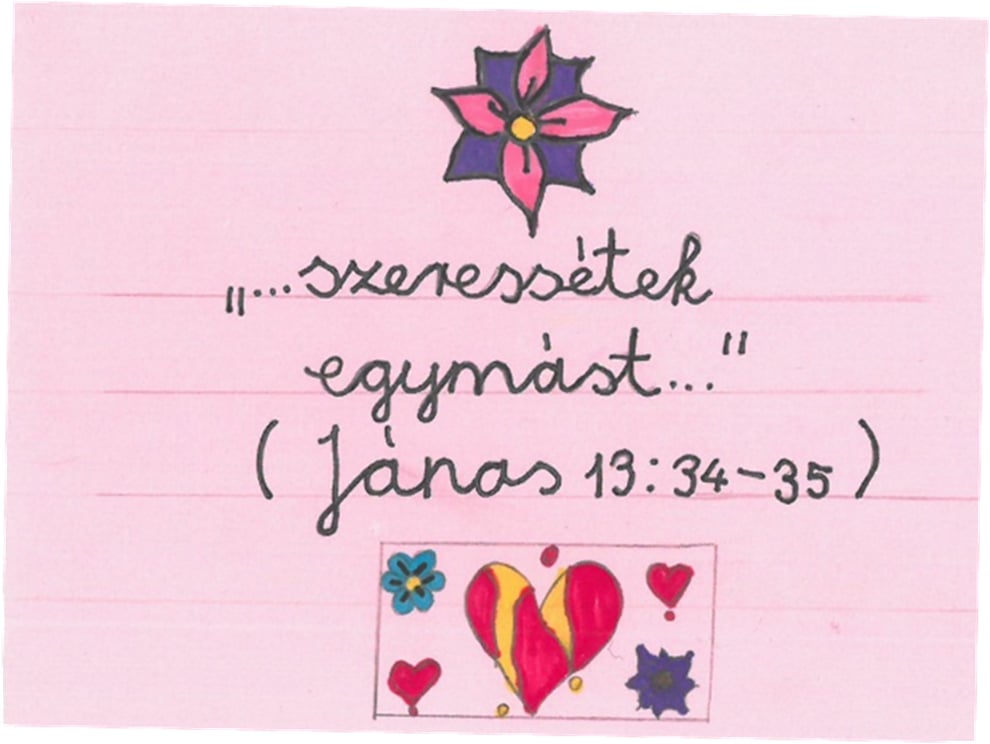 „...szeressétek
egymást..."
(János 13:34-35)